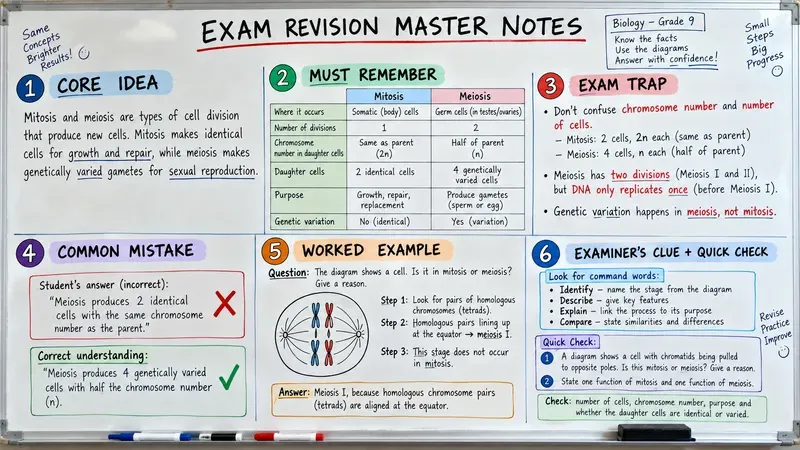 Same
Concepts
Brighter
Results!
EXAM REVISION MASTER NOTES
Biology – Grade 9
Know the facts
Use the diagrams
Answer with confidence!
Small
Steps
Big
Progress
1 CORE IDEA
Mitosis and meiosis are types of cell division
that produce new cells. Mitosis makes identical
cells for growth and repair, while meiosis makes
genetically varied gametes for sexual reproduction.
2 MUST REMEMBER
Mitosis Meiosis
Where it occurs Somatic (body) cells Germ cells (in testes/ovaries)
Number of divisions 1 2
Chromosome
number in daughter cells
Same as parent
(2n)
Half of parent
(n)
Daughter cells 2 identical cells
4 genetically
varied cells
Purpose
Growth, repair,
replacement
Produce gametes
(sperm or egg)
Genetic variation No (identical) Yes (variation)
3 EXAM TRAP
• Don't confuse chromosome number and number
of cells.
– Mitosis: 2 cells, 2n each (same as parent)
– Meiosis: 4 cells, n each (half of parent)
• Meiosis has two divisions (Meiosis I and II),
but DNA only replicates once (before Meiosis I).
• Genetic variation happens in meiosis, not mitosis.
4 COMMON MISTAKE
Student's answer (incorrect):
"Meiosis produces 2 identical
cells with the same chromosome
number as the parent."
Correct understanding:
"Meiosis produces 4 genetically varied
cells with half the chromosome number
(n).
5 WORKED EXAMPLE
Question: The diagram shows a cell. Is it in mitosis or meiosis?
Give a reason.
Step 1: Look for pairs of homologous
chromosomes (tetrads).
Step 2: Homologous pairs lining up
at the equator → meiosis I.
Step 3: This stage does not occur
in mitosis.
Answer: Meiosis I, because homologous chromosome pairs
(tetrads) are aligned at the equator.
6 EXAMINER'S CLUE + QUICK CHECK
Look for command words:
• Identify – name the stage from the diagram
• Describe – give key features
• Explain – link the process to its purpose
• Compare – state similarities and differences
Quick Check:
1 A diagram shows a cell with chromatids being pulled
to opposite poles. Is this mitosis or meiosis? Give a reason.
2 State one function of mitosis and one function of meiosis.
Check: number of cells, chromosome number, purpose and
whether the daughter cells are identical or varied.
Revise
Practice
Improve